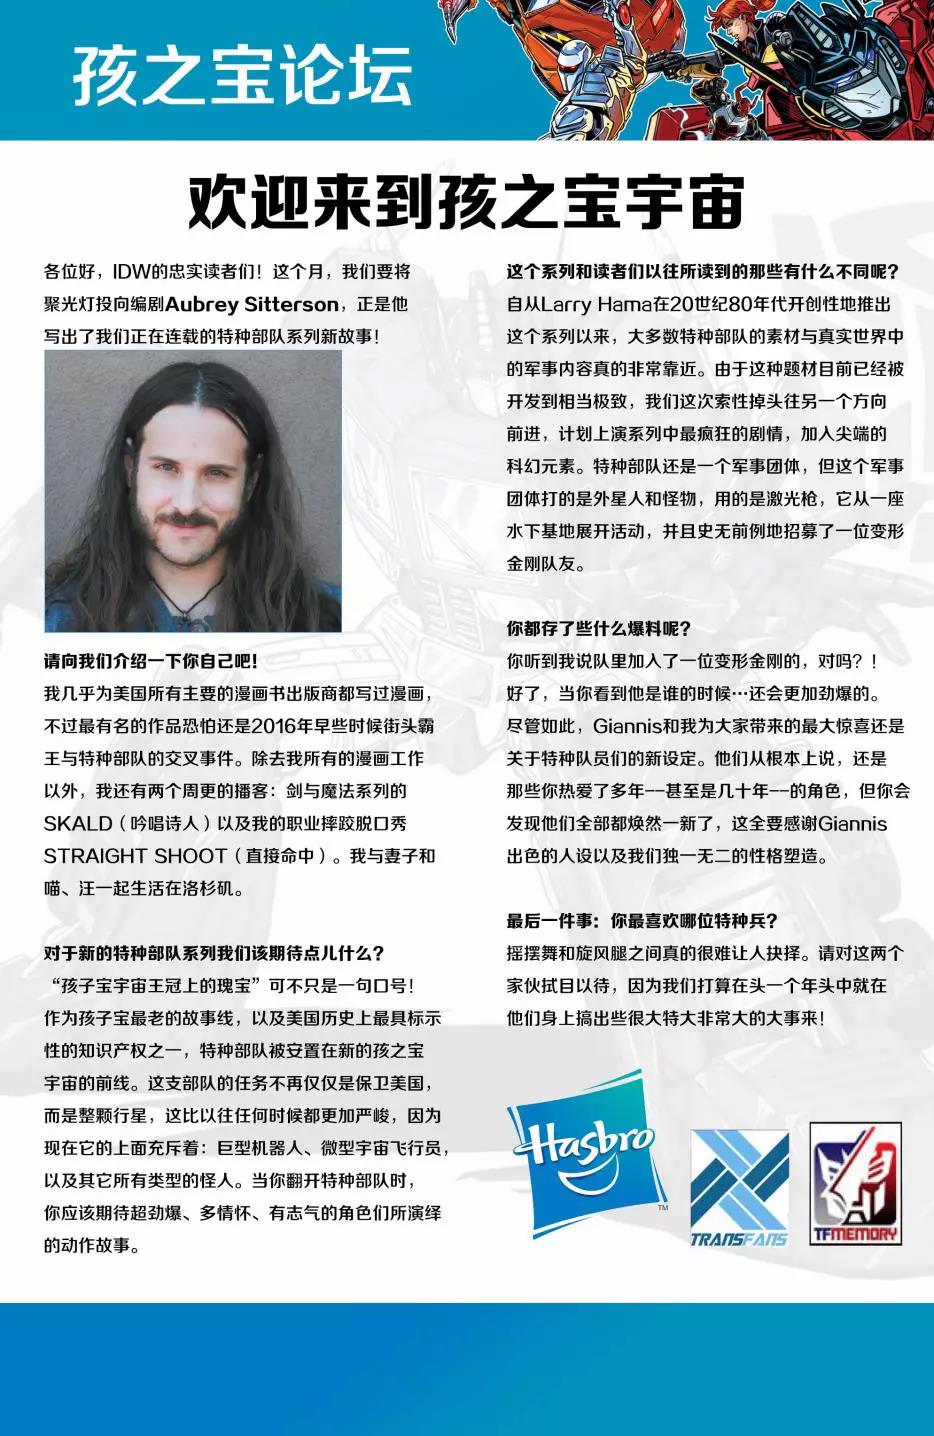 孩之宝论坛
欢迎来到孩之宝宇宙
各位好，IDW的忠实读者们！这个月，我们要将
聚光灯投向编剧Aubrey Sitterson，正是他
写出了我们正在连载的特种部队系列新故事！
请向我们介绍一下你自己吧！
我几乎为美国所有主要的漫画书出版商都写过漫画，
不过最有名的作品恐怕还是2016年早些时候街头霸
王与特种部队的交叉事件。除去我所有的漫画工作
以外，我还有两个周更的播客：剑与魔法系列的
SKALD（吟唱诗人）以及我的职业摔跤脱口秀
STRAIGHT SHOOT（直接命中）。我与妻子和
喵、汪一起生活在洛杉矶。
对于新的特种部队系列我们该期待点儿什么？
“孩子宝宇宙王冠上的瑰宝”可不只是一句口号！
作为孩子宝最老的故事线，以及美国历史上最具标示
性的知识产权之一，特种部队被安置在新的孩之宝
宇宙的前线。这支部队的任务不再仅仅是保卫美国，
而是整颗行星，这比以往任何时候都更加严峻，因为
现在它的上面充斥着：巨型机器人、微型宇宙飞行员，
以及其它所有类型的怪人。当你翻开特种部队时，
你应该期待超劲爆、多情怀、有志气的角色们所演绎
的动作故事。
这个系列和读者们以往所读到的那些有什么不同呢？
自从Larry Hama在20世纪80年代开创性地推出
这个系列以来，大多数特种部队的素材与真实世界中
的军事内容真的非常靠近。由于这种题材目前已经被
开发到相当极致，我们这次索性掉头往另一个方向
前进，计划上演系列中最疯狂的剧情，加入尖端的
科幻元素。特种部队还是一个军事团体，但这个军事
团体打的是外星人和怪物，用的是激光枪，它从一座
水下基地展开活动，并且史无前例地招募了一位变形
金刚队友。
你都存了些什么爆料呢？
你听到我说队里加入了一位变形金刚的，对吗？！
好了，当你看到他是谁的时候…还会更加劲爆的。
尽管如此，Giannis和我为大家带来的最大惊喜还是
关于特种队员们的新设定。他们从根本上说，还是
那些你热爱了多年--甚至是几十年--的角色，但你会
发现他们全部都焕然一新了，这全要感谢Giannis
出色的人设以及我们独一无二的性格塑造。
最后一件事：你最喜欢哪位特种兵？
摇摆舞和旋风腿之间真的很难让人抉择。请对这两个
家伙拭目以待，因为我们打算在头一个年头中就在
他们身上搞出些很大特大非常大的大事来！
Hasbro
TM
TRANSFANS
TFMEMORY